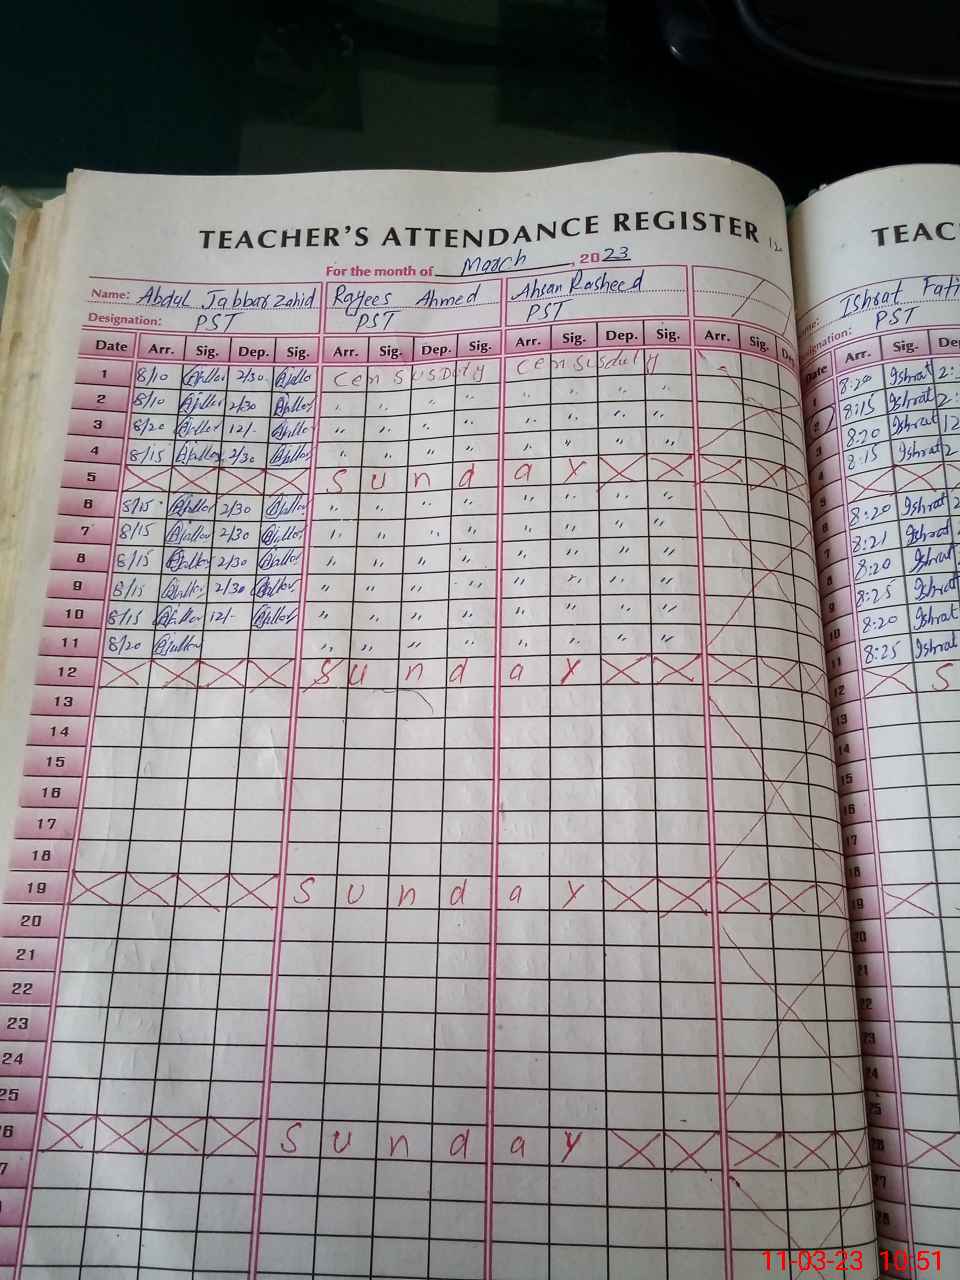 TEACHER'S ATTENDANCE REGISTER
TEAC
For the month of March, 2023
Name: Abdul Jabbar Zahid Rayees Ahmed Ahsan Rasheed
Ishrat Fati
Designation: PST PST PST
PST
Date Arr. Sig. Dep. Sig. Arr. Sig. Dep. Sig. Arr. Sig. Dep. Sig. Arr. Sig. De
Date Arr. Sig. De
1 8/10 2/30 Census Duty Census duty
8:20 Ishrat 2:
2 8/10 2/30 " " " " " " " "
8:15 Ishrat 2:
3 8/20 12/- " " " " " " " "
8:20 Ishrat 12
4 8/15 2/30 " " " " " " " "
8:15 Ishrat 2
5 Sunday
6 8/15 2/30 " " " " " " " "
8:20 Ishrat
7 8/15 2/30 " " " " " " " "
8:21 Ishrat
8 8/15 2/30 " " " " " " " "
8:20 Ishrat
9 8/15 2/30 " " " " " " " "
8:25 Ishrat
10 8/15 12/- " " " " " " " "
10 8:20 Ishrat
11 8/20 " " " " " " " "
11 8:25 Ishrat
12 Sunday
12 S
13
13
14
14
15
15
16
16
17
17
18
18
19 Sunday
19
20
20
21
21
22
22
23
23
24
24
25
25
6 Sunday
26
7
27
28
11-03-23 10:51